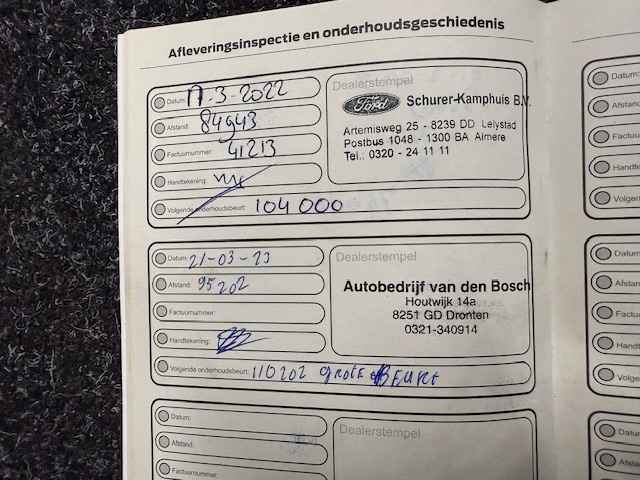 Afleveringsinspectie en onderhoudsgeschiedenis
Datum: 17-3-2022
Afstand: 84943
Factuurnummer: 41213
Handtekening:
Volgende onderhoudsbeurt: 104000
Dealerstempel
Ford Schurer-Kamphuis B.V.
Artemisweg 25 - 8239 DD Lelystad
Postbus 1048 - 1300 BA Almere
Tel.: 0320 - 24 11 11
Datum: 21-03-23
Afstand: 95202
Factuurnummer:
Handtekening:
Volgende onderhoudsbeurt: 110202 GROTE BEURT
Dealerstempel
Autobedrijf van den Bosch
Houtwijk 14a
8251 GD Dronten
0321-340914
Datum:
Afstand:
Factuurnummer:
Dealerstempel
Datum:
Afstand
Factuu
Handt
Volgen
Datum:
Afstan
Factuu
Handt
Volge
Datum
Afstan
Factu